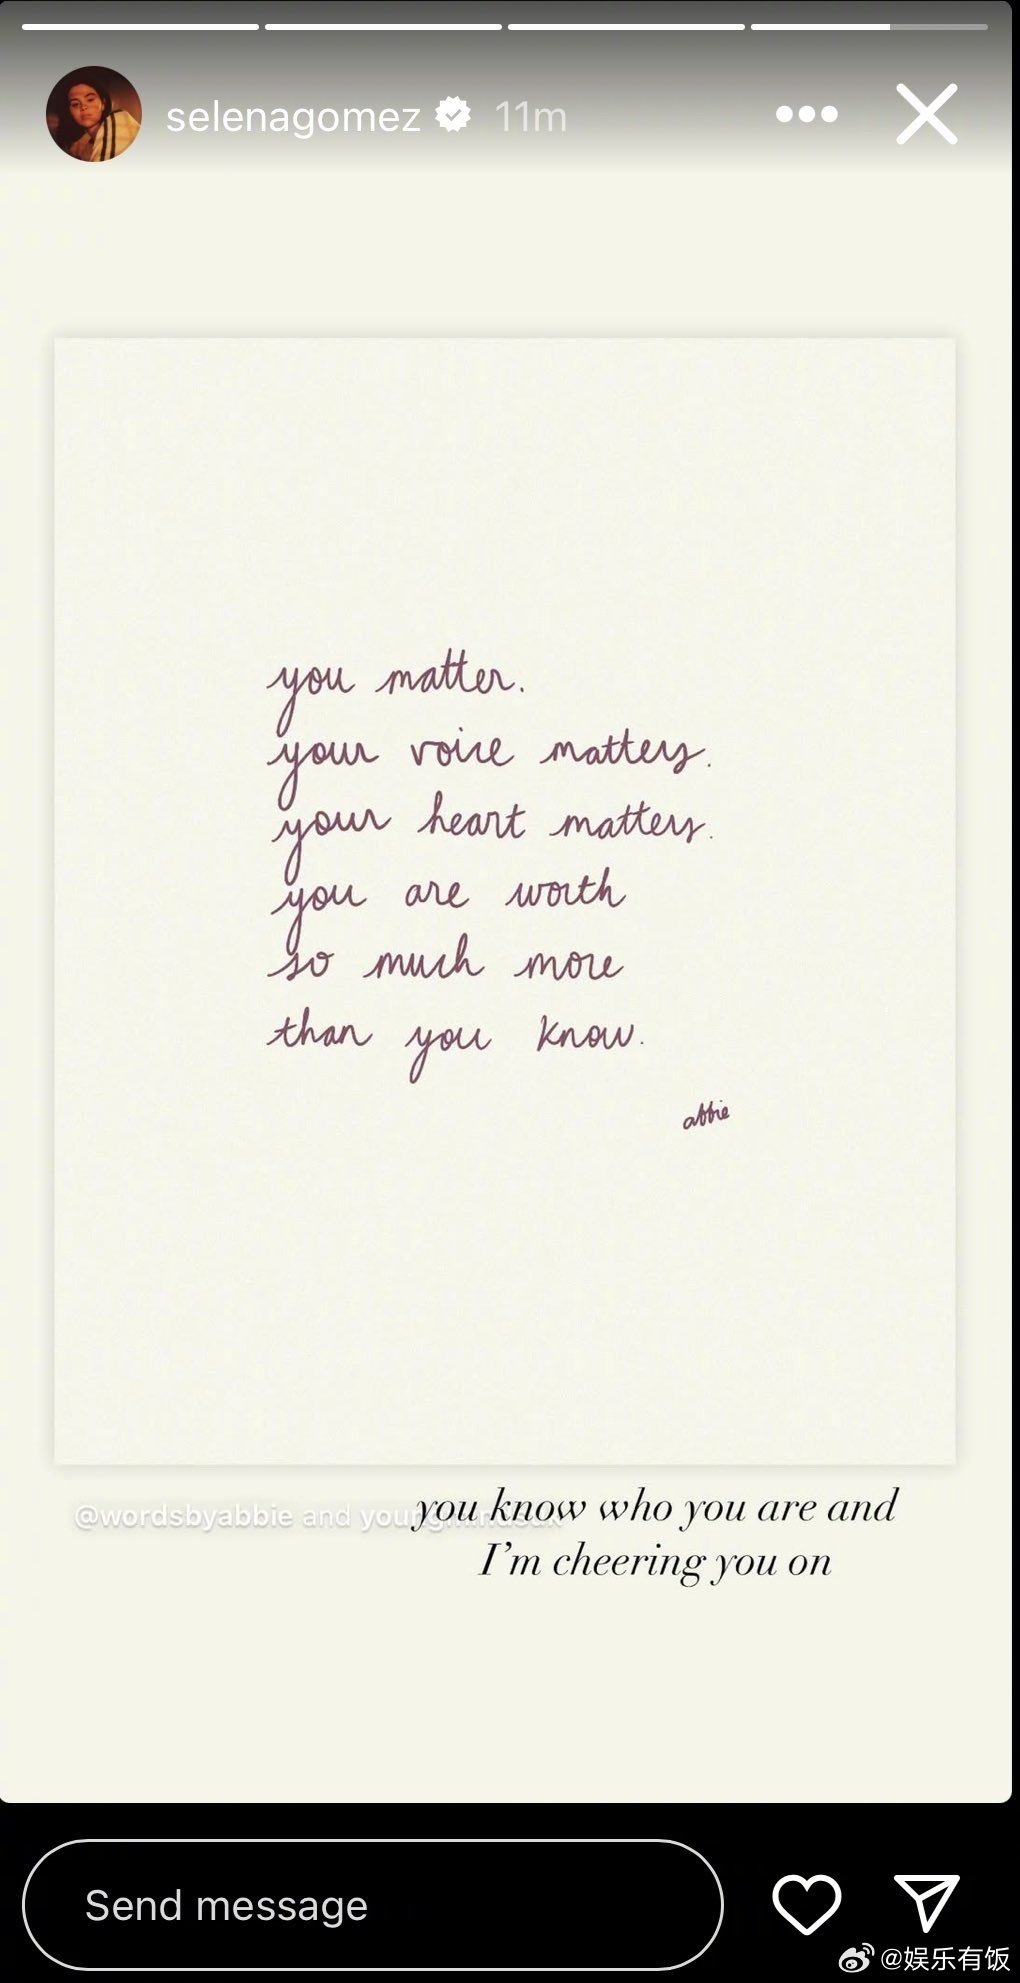 selenagomez 11m
you matter.
your voice matters.
your heart matters.
you are worth
so much more
than you know.
abbie
@wordsbyabbie and youngmindsuk
you know who you are and
I'm cheering you on
Send message
@娱乐有饭